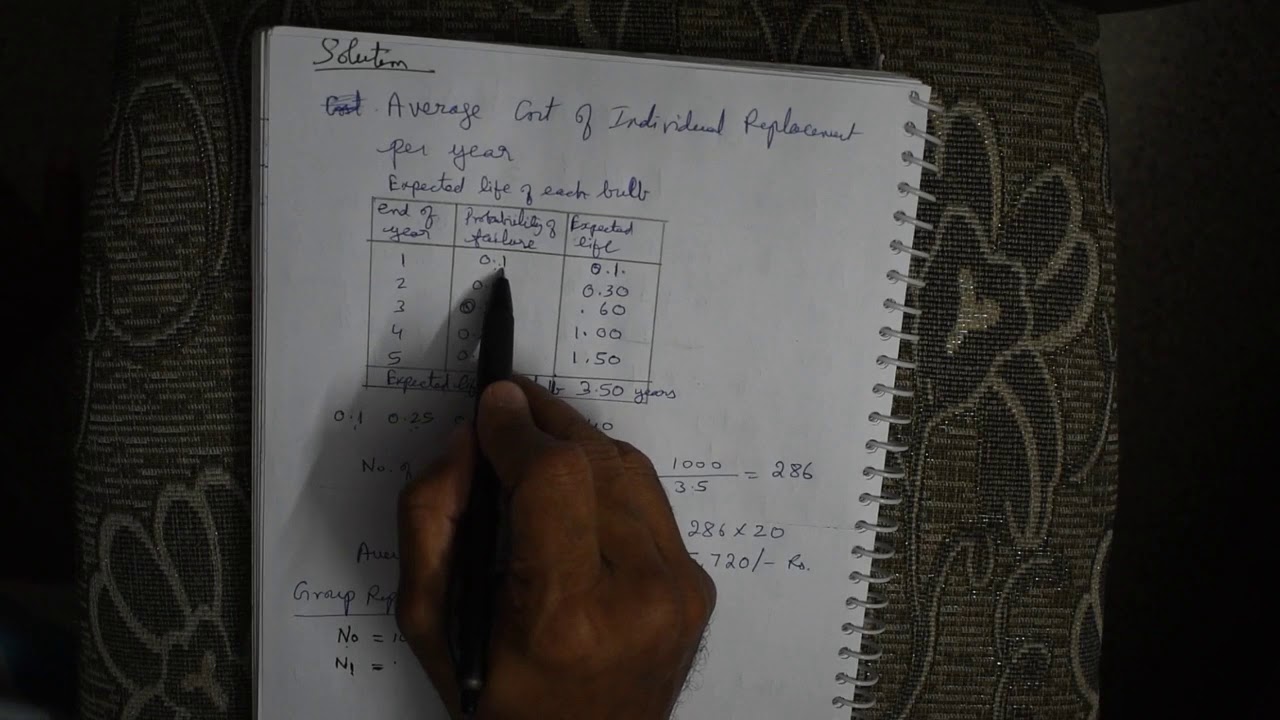 Solution
Cost. Average Cost of Individual Replacement
per year
Expected life of each bulb
end of year Probability of failure Expected life
1 0.1 0.1.
2 0 0.30
3 0. .60
4 0. 1.00
5 0. 1.50
Expected 3.50 years
0.1 0.25
No. of 1000 / 3.5 = 286
286 × 20
,720/- Rs.
Group
No =
N1 =